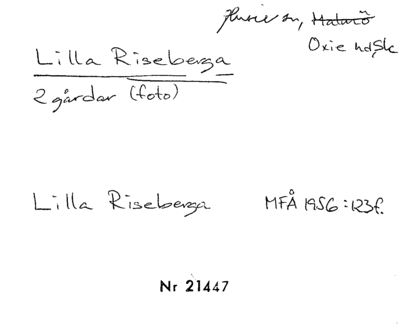 Husie sn,
Oxie hd, Sk
Lilla Riseberga
2 gårdar (foto)
Lilla Riseberga MFÅ 1956:123f.
Nr 21447